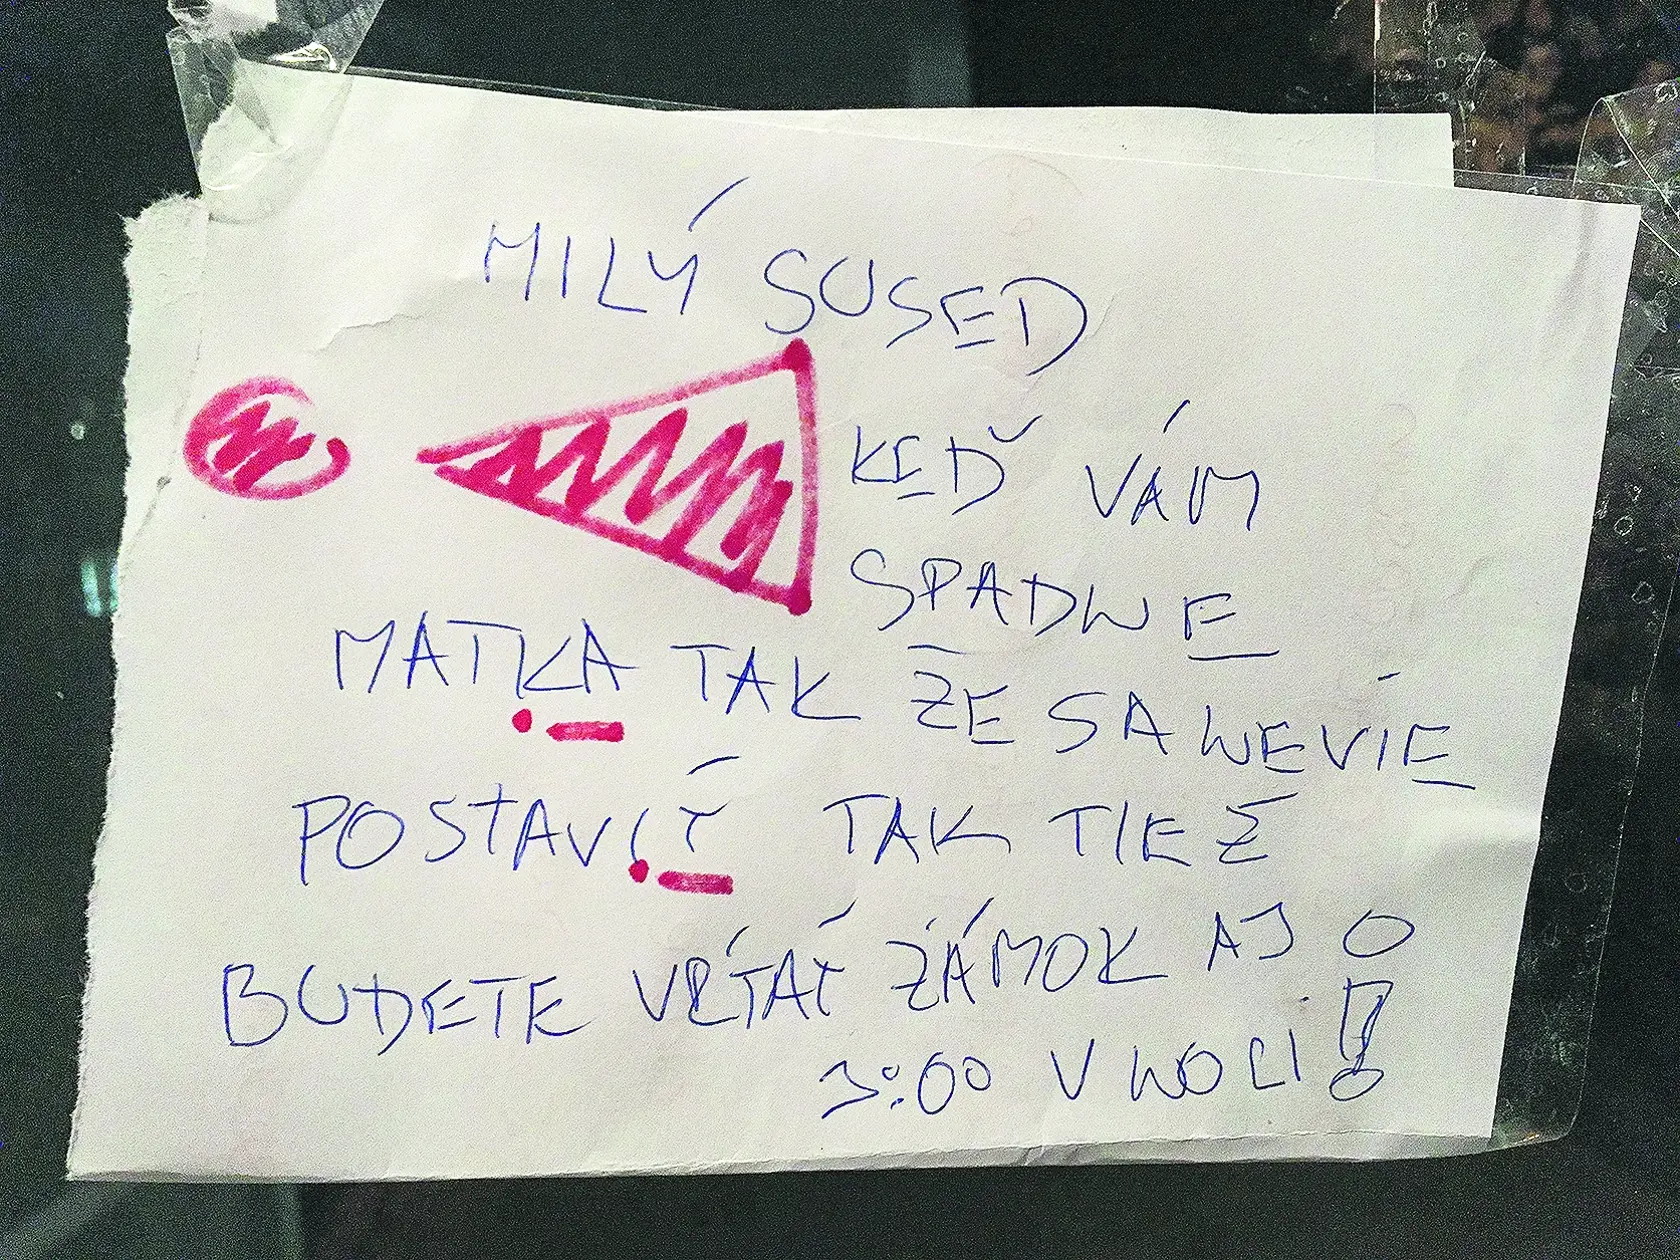 MILÝ SUSED
KEĎ VÁM
SPADNE
MATKA TAK ŽE SA NEVÍE
POSTAVIŤ TAK TIEŽ
BUDETE VŔTAŤ ZÁMOK AJ O
3:00 V NOCI!